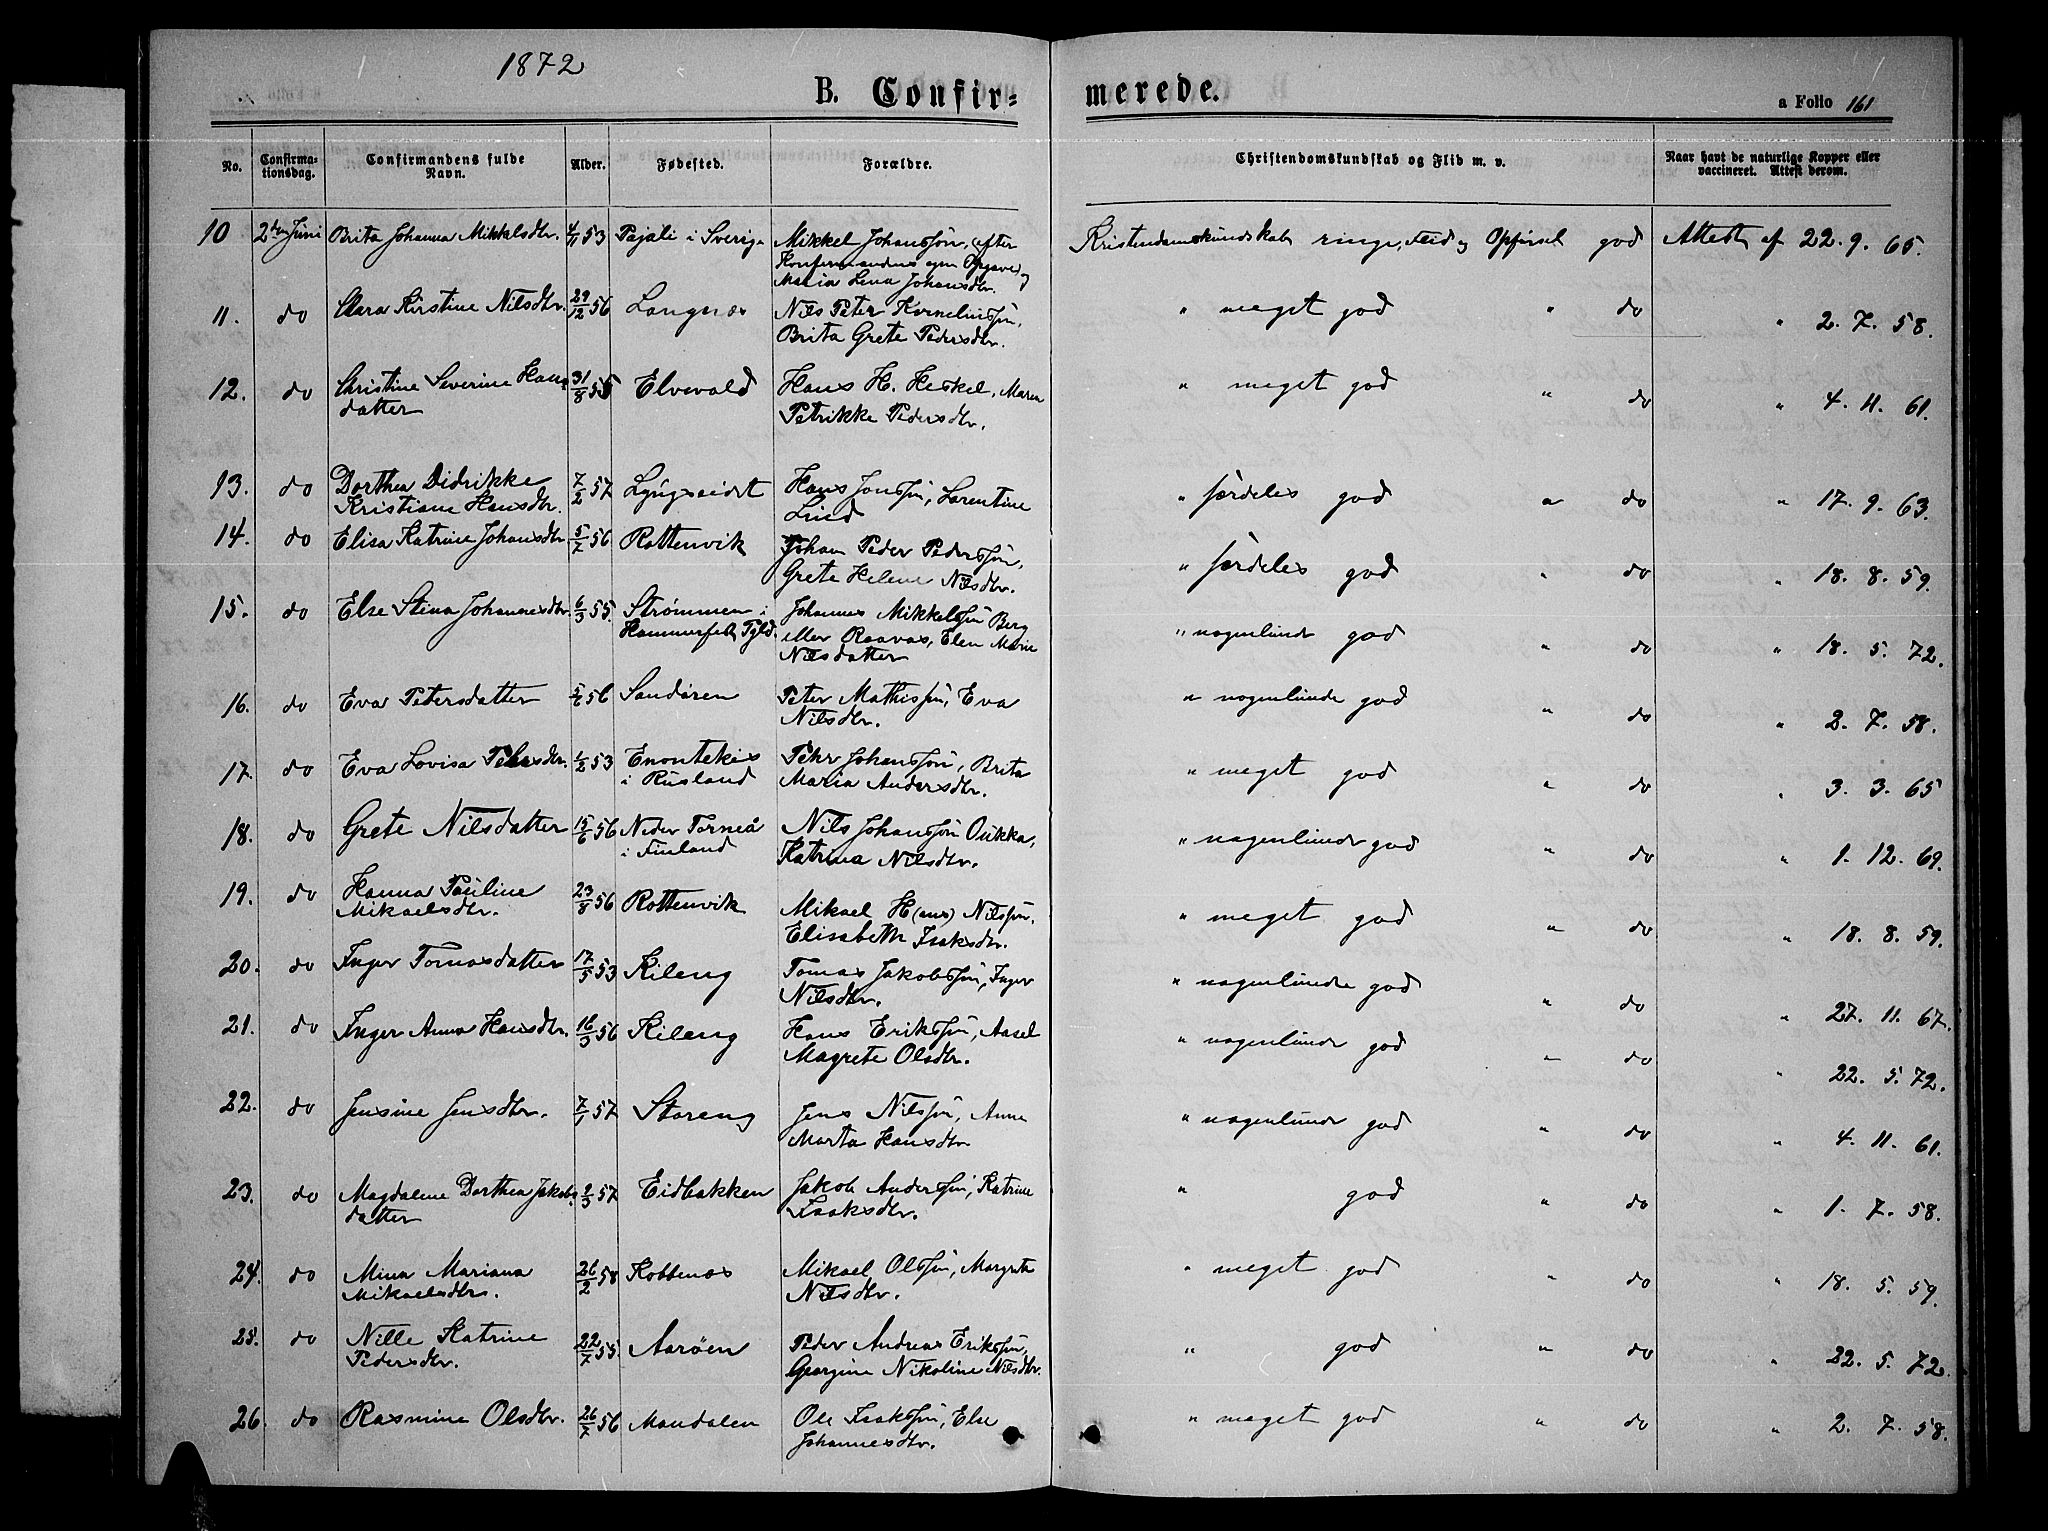 1872
B. Confir=
merede.
a Folio 161
No.
Confirma-
tionsdag.
Confirmandens fulde
Navn.
Alder.
Fødested.
Forældre.
Christendomskundskab og Flid m. v.
Naar havt de naturlige Kopper eller
vaccineret. Attest derom.
10 2den Juni Brita Johanna Mikkelsdtr. 4/11 53 Pajali i Sverig. Mikkel Johanssøn, (efter
Konfirmandens egen Opgave) og
Maria Lena Johansdtr.
Kristendomskundskab ringe, Flid og Opførsel god Attest af 22. 9. 65.
11. do Clara Kirstine Nilsdtr. 29/12 56 Langnæs Nils Peter Kornelius søn,
Brita Grete Pedersdtr.
" meget god " do " 2. 7. 58.
12. do Christine Severine Hans
datter 31/8 55 Elvevold Hans H. Heskel, Maren
Petrikke Pedersdtr.
" meget god " do " 4. 11. 61.
13. do Dorthea Didrikke
Kristiane Hansdtr. 7/2 57 Lyngseidet Hans Jonssøn, Larentine
Lind
" særdeles god " do " 17. 9. 63.
14. do Elisa Katrine Johansdtr 5/7 56 Rottenvik Johan Peder Pederssøn,
Grete Helene Nilsdtr.
" særdeles god " do " 18. 8. 59.
15. do Else Stina Johannesdtr. 6/3 55. Strømmen i
Hammerfest Pgld. Johannes Mikkelssøn Berg
eller Raavas, Elen Marie
Nilsdatter
" nogenlunde god " do " 18. 5. 72.
16. do Eva Petersdatter 5/6 56 Sandøren Peter Mathissøn, Eva
Nilsdtr.
" nogenlunde god " do " 2. 7. 58.
17. do Eva Lovisa Pehrsdtr. 1/2 53 Enontekis
i Rusland Pehr Johanssøn, Brita
Maria Andersdtr.
" meget god " do " 3. 3. 65
18. do Grete Nilsdatter 15/6 56 Neder Torneå
i Finland Nils Johanssøn Oukka,
Katrina Nilsdtr.
" nogenlunde god " do " 1. 12. 69.
19. do Hanna Pauline
Mikaelsdtr. 23/8 56 Rottenvik Mikael H(ans) Nilssøn,
Elisabeth Isaksdtr.
" meget god " do " 18. 8. 59.
20. do Inger Tomasdatter 17/5 53 Kileng Tomas Jakobssøn, Inger
Nilsdtr.
" nogenlunde god " do " 27. 11. 67.
21. do Inger Anna Hansdtr. 16/3 56 Kileng Hans Erikssøn, Aasel
Magrete Olsdtr.
" nogenlunde god " do " 22. 5. 72.
22. do Jensine Jensdtr. 7/1 57 Storeng Jens Nilssøn, Anne
Marta Hansdtr
" nogenlunde god " do " 4. 11. 61.
23. do Magdalene Dorthea Jakobs
datter 2/3 57 Eidbakken Jakob Anderssøn, Katrine
Isaksdtr.
" god " do " 1. 7. 58.
24. do Mina Mariana
Mikaelsdtr. 26/2 58 Kobbenæs Mikael Olssøn, Margrete
Nilsdtr.
" meget god " do " 18. 5. 59.
25. do Nille Katrine
Pedersdtr. 22/7 55. Aarøen Peder Andreas Erikssøn,
Georgine Nikoline Nilsdtr.
" god " do " 22. 5. 72.
26. do Rasmine Olsdtr. 26/7 56 Mandalen Ole Isakssøn, Else
Johannesdtr.
" meget god " do " 2. 7. 58.